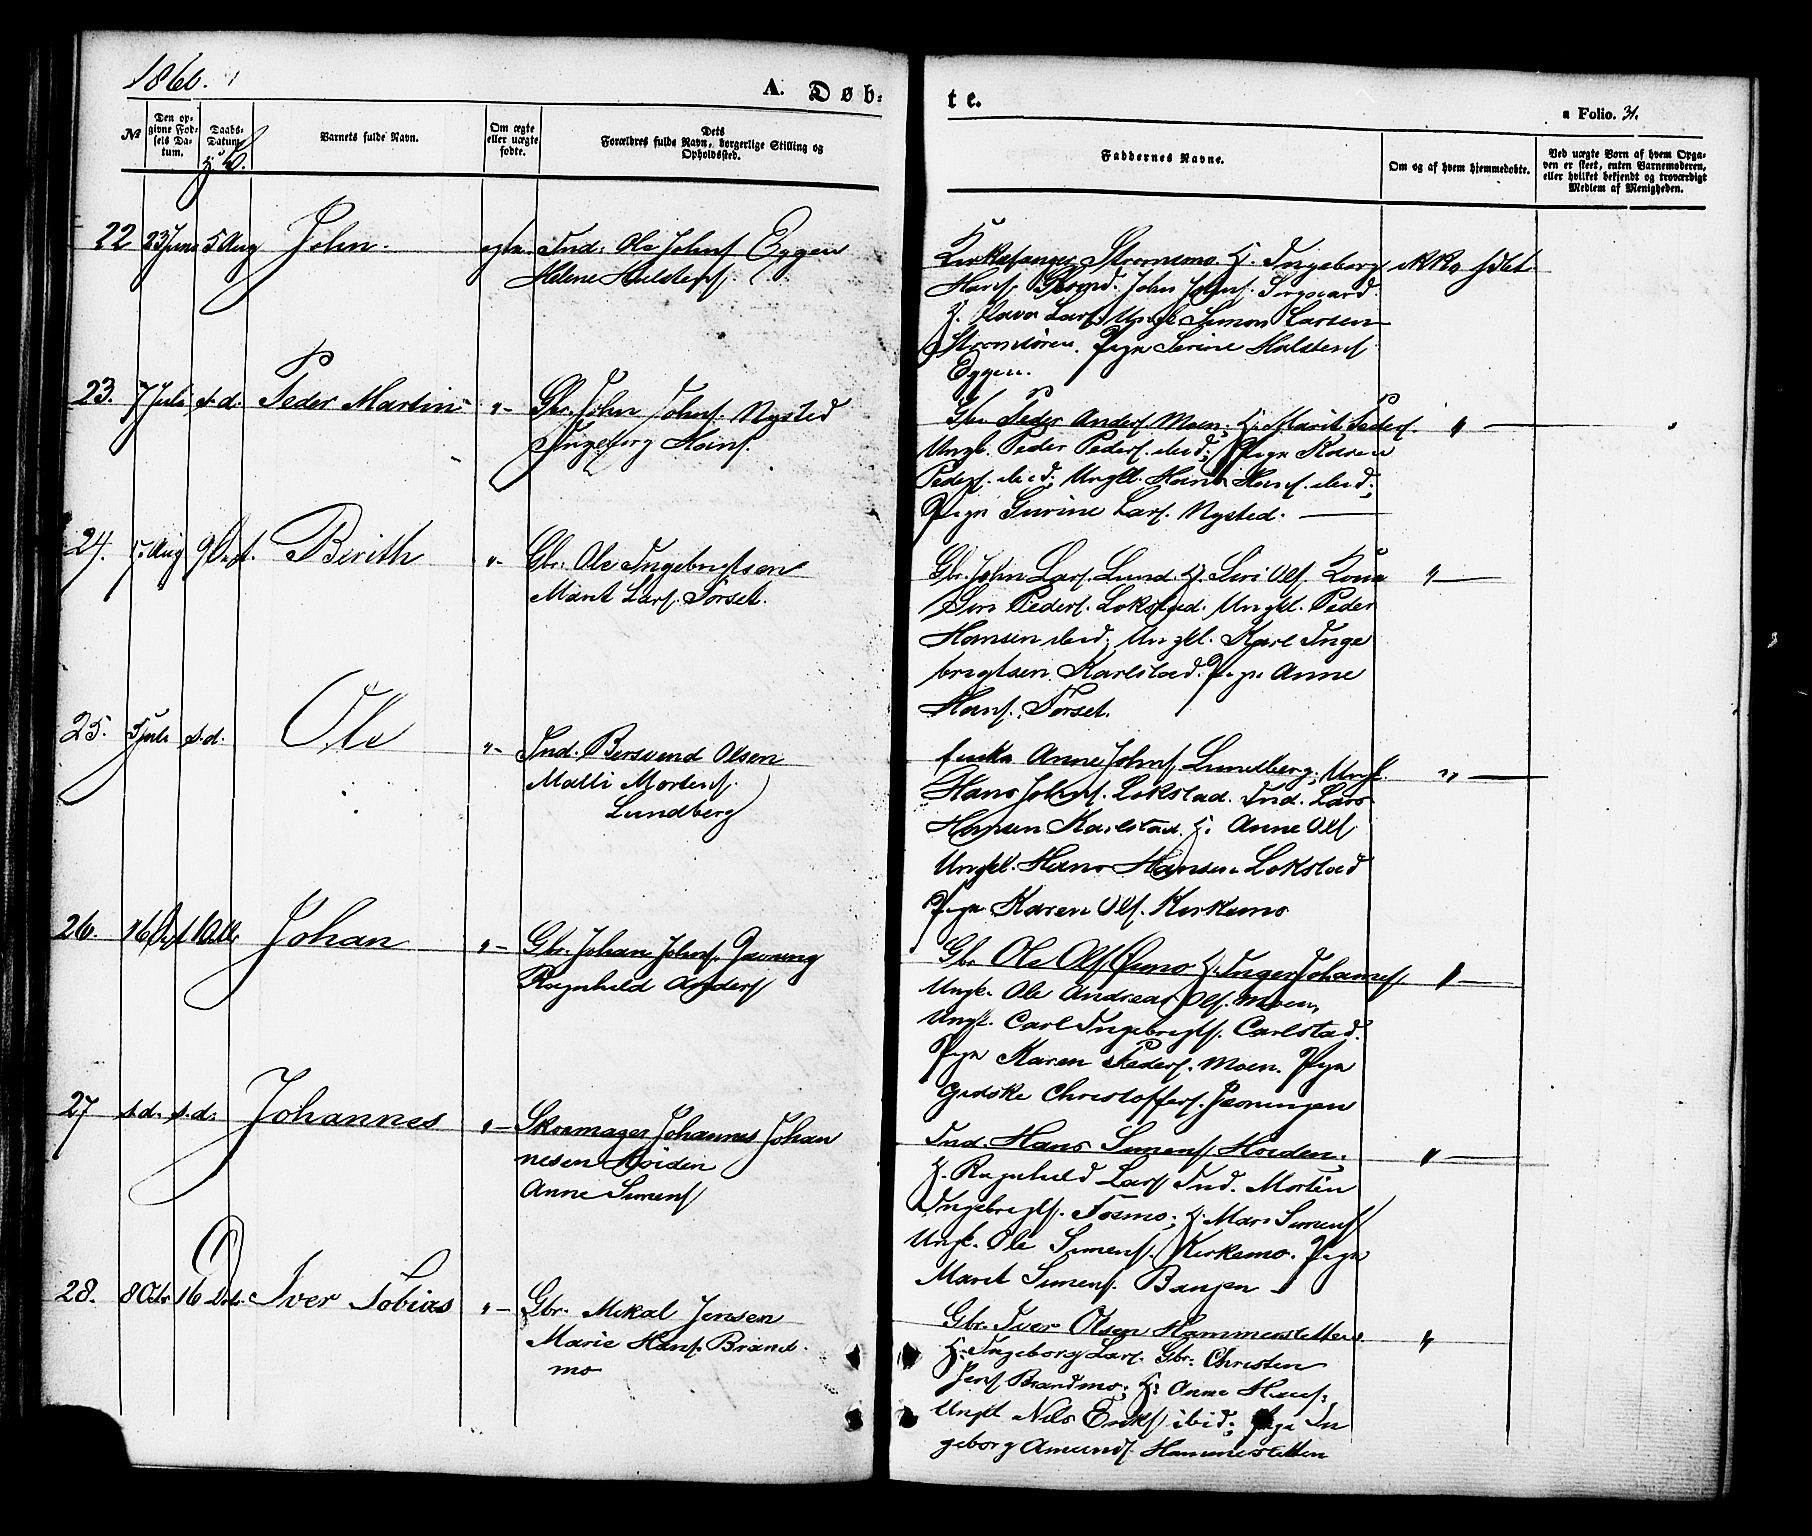 1860.
A. Døb-
te.
a Folio. 31.
No
Den op-
givne Fød-
sels Da-
tum.
Daabs-
Datum
Barnets fulde Navn.
Om ægte
eller uægte
fødte.
Dets
Forældres fulde Navn, borgerlige Stilling og
Opholdssted.
Faddernes Navne.
Om og af hvem hjemmedøbte.
Ved uægte Børn af hvem Opga-
ven er skeet, enten Barnemoderen,
eller hvilket bekjendt og troværdigt
Medlem af Menigheden.
22 23 Juni 5 Aug John. egte. Ind. Ole Johns. Eggen
Helene Halstens.
Kirkesanger Strømsmo H. Ingeborg
Hans. Gbrmd. John Johns.
H. Olava Lars. Ungk. Simon Larsen
Strømsøren. Pige Serine Halstens.
Eggen.
ikke hdbt.
23. 7 Juli s.d. Peder Martin "- Gbr. John Johns. Nysted
Ingeborg Hans.
Gbr. Peder Anders. Moen; H. Marit Peders.
Ungk. Peder Peders. ibid; Pige Karen
Peders. ibid; Ungk. Hans Hans. ibid;
Pige Lars. Nysted.
"
24. 5 Aug 9 Berith "- Gbr. Ole Ingebrigtsen
Marit Lars. Forset.
Gbr. John Lars. Lund. H. Siri Ols. Kone
Peders. Lokstad. Ungkl. Peder
Hansen ibid; Ungkl. Karl Inge
brigtsen Karlstad. Pige Anne
Hans. Forset.
"
25. Juli s.d. Ole "- Ind. Bersvend Olsen
Malli Mortens.
Lundberg
Enke Anne Johns. Lundberg; Ungk.
Hans Johns. Lokstad. Ind. Lars
Hansen Karlstad. H. Anne Ols.
Ungkl. Hans Hansen Lokstad
Pige Karen Ols. Kirkemo
"
26. 16 Johan "- Gbr. Johan Johns.
Ragnhild Anders.
Gbr. Ole Ols. Øimo H. Inger Johannes.
Ungk. Ole Andreas Ols. Moen,
Ungk. Carl Ingebrigts. Carlstad.
Pige Karen Peders. Moen. Pige
Gidske Christoffers.
"
27 s.d. s.d. Johannes "- Skomager Johannes Johan
nesen Høiden
Anne Simens.
Ind. Hans Simens. Høiden;
H. Ragnhild Lars. Ind. Morten
Ingebrigts. Fosmo; H. Mari Simens.
Ungk. Ole Simens. Kirkemo. Pige
Marit Simens.
"
28. 8 Octr 16 Iver Tobias "- Gbr. Mikal Jensen
Marie Hans. Brand-
mo
Gbr. Iver Olsen Hammersletten
H. Ingeborg Lars. Gbr. Christen
Jens. Brandmo; H. Anne Hans;
Ungk Nils Eriks. ibid; Pige In
geborg Amunds. Hammersletten
"